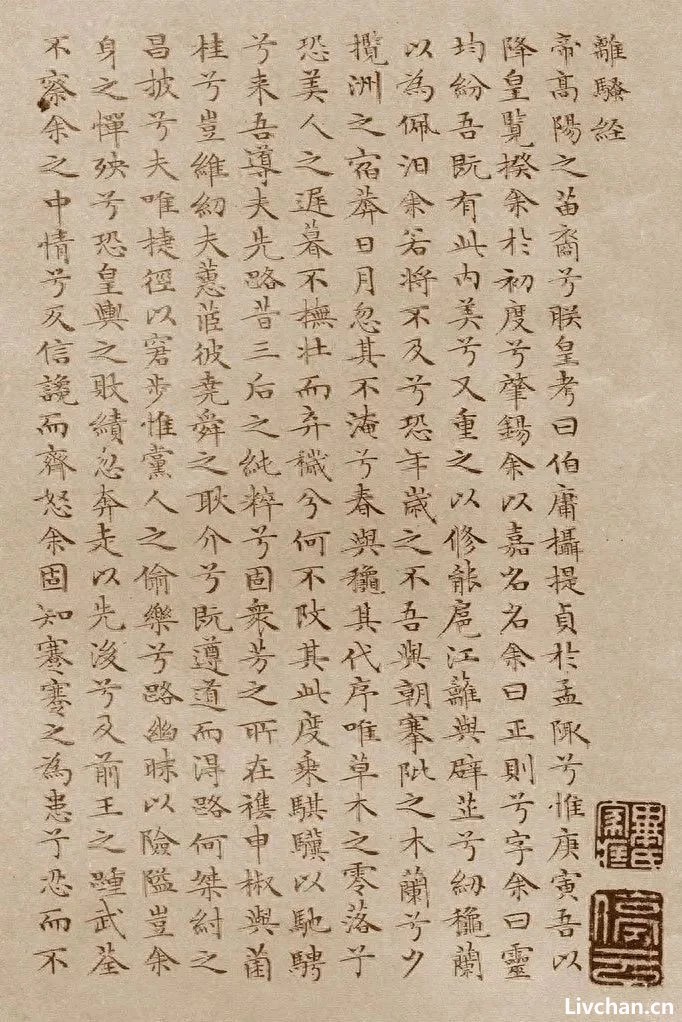 離騷経
帝髙陽之苗裔兮朕皇考曰伯庸攝提貞於孟陬兮惟庚寅吾以
降皇覽揆余於初度兮肈錫余以嘉名名余曰正則兮字余曰靈
均紛吾既有此内美兮又重之以修能扈江蘺與辟芷兮紉穐蘭
以為佩汨余若將不及兮恐年歲之不吾與朝搴阰之木蘭兮夕
攬洲之宿莽日月忽其不淹兮春與穐其代序唯草木之零落兮
恐美人之遲暮不撫壯而弃穢兮何不改其此度乘騏驥以馳騁
兮来吾導夫先路昔三后之純粹兮固衆芳之所在襍申椒與菌
桂兮豈維紉夫蕙茝彼堯舜之耿介兮既遵道而得路何桀紂之
昌披兮夫唯捷徑以窘步惟黨人之偷樂兮路幽昧以險隘豈余
身之憚殃兮恐皇輿之敗績忽奔走以先後兮及前王之踵武荃
不察余之中情兮反信讒而齊怒余固知謇謇之為患兮忍而不
停云
Livchan.cn